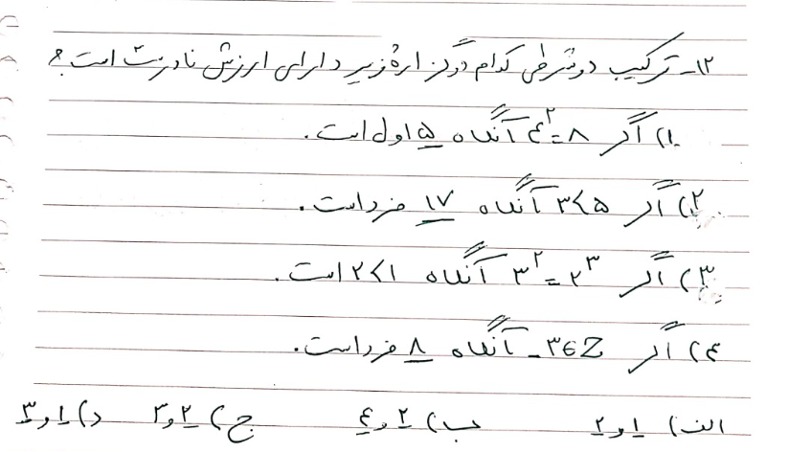 ۱۲- ترکیب دوشرطی کدام دو گزارهٔ زیر دارای ارزش نادرست است؟
۱) اگر ۸=۴^۲ آنگاه ۵ اول است.
۲) اگر ۵<۳ آنگاه ۱۷ فرد است.
۳) اگر ۳^۲=۲^۳ آنگاه ۲<۱ است.
۴) اگر -۳∈Z آنگاه ۸ فرد است.
الف) ۱ و ۲ ب) ۲ و ۴ ج) ۲ و ۳ د) ۱ و ۳